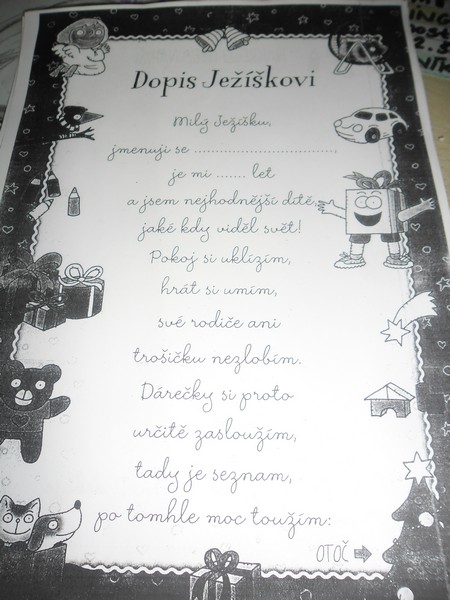 Dopis Ježíškovi
Milý Ježíšku,
jmenuji se ..............................,
je mi ....... let
a jsem nejhodnější dítě,
jaké kdy viděl svět!
Pokoj si uklízím,
hrát si umím,
své rodiče ani
trošičku nezlobím.
Dárečky si proto
určitě zasloužím,
tady je seznam,
po tomhle moc toužím:
OTOČ